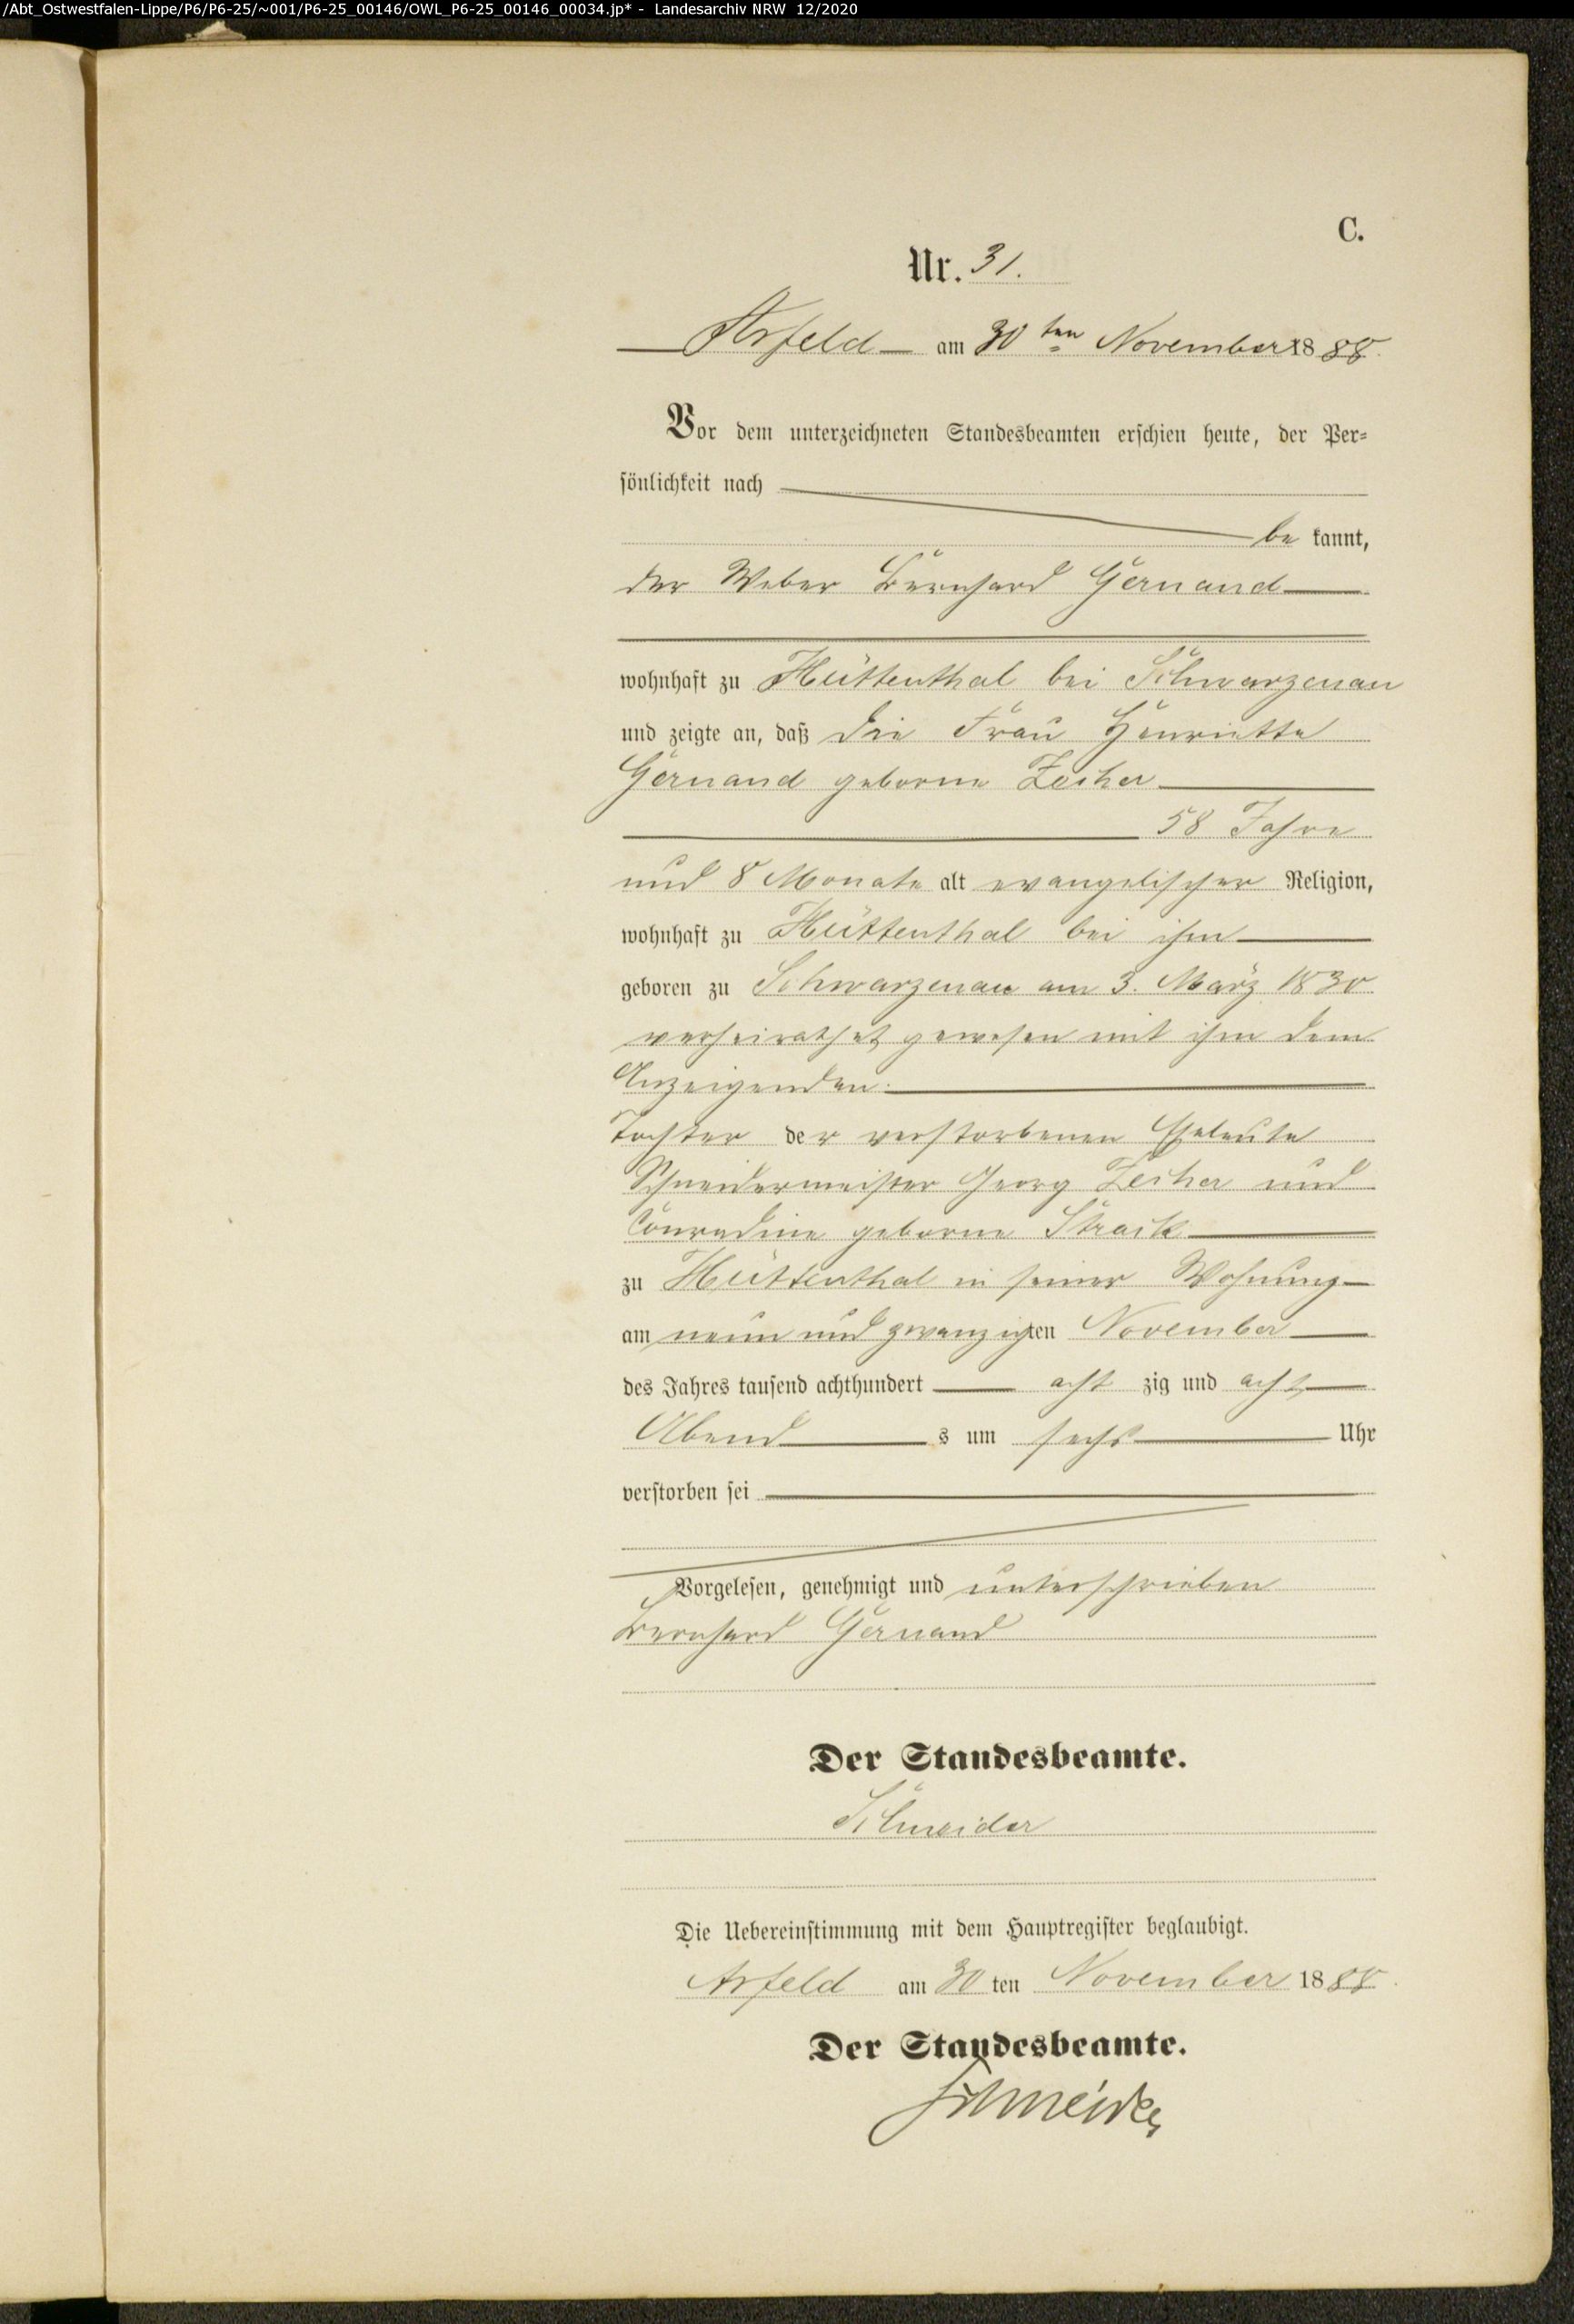 /Abt_Ostwestfalen-Lippe/P6/P6-25/~001/P6-25_00146/OWL_P6-25_00146_00034.jp* - Landesarchiv NRW 12/2020
C.
Nr. 31.
Arfeld am 30ten November 1888.
Vor dem unterzeichneten Standesbeamten erschien heute, der Per-
sönlichkeit nach
be kannt,
der Weber Bernhard Gernand
wohnhaft zu Hüttenthal bei Schwarzenau
und zeigte an, daß die Frau Henriette
Gernand geborne Zecher
58 Jahre
und 8 Monate alt evangelischer Religion,
wohnhaft zu Hüttenthal bei ihm
geboren zu Schwarzenau am 3. März 1830
verheirathet gewesen mit ihm dem
Anzeigenden.
Tochter der verstorbenen Eheleute
Schneidermeister Georg Zecher und
Conradine geborne Strack
zu Hüttenthal in seiner Wohnung
am neun und zwanzigten November
des Jahres tausend achthundert acht zig und acht
Abend s um sechs Uhr
verstorben sei
Vorgelesen, genehmigt und unterschrieben
Bernhard Gernand
Der Standesbeamte.
Schneider
Die Uebereinstimmung mit dem Hauptregister beglaubigt.
Arfeld am 30 ten November 1888.
Der Standesbeamte.
Schneider